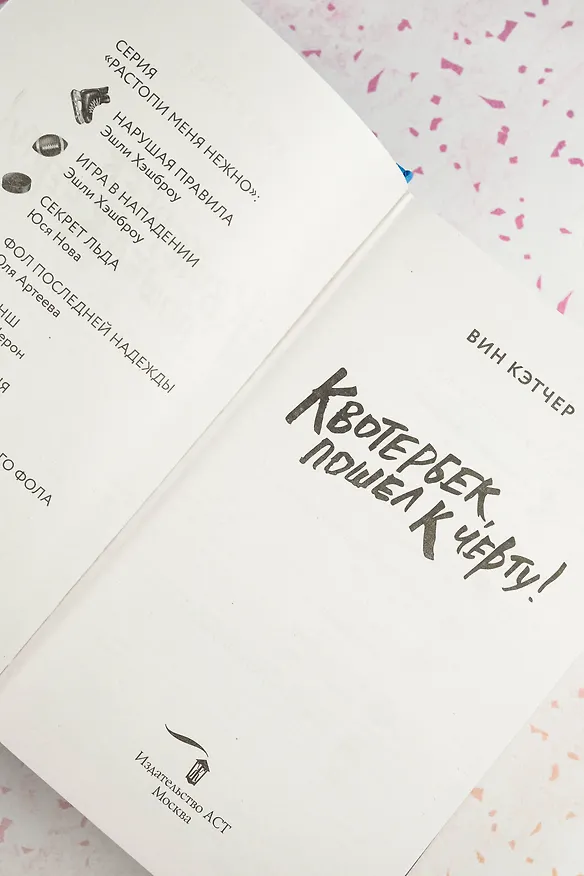 СЕРИЯ
«РАСТОПИ МЕНЯ НЕЖНО»:
НАРУШАЯ ПРАВИЛА
Эшли Хэшброу
ИГРА В НАПАДЕНИИ
Эшли Хэшброу
СЕКРЕТ ЛЬДА
Юся Нова
ФОЛ ПОСЛЕДНЕЙ НАДЕЖДЫ
Оля Артеева
ФОЛА
ВИН КЭТЧЕР
КВОТЕРБЕК,
ПОШЕЛ К ЧЁРТУ!
Издательство АСТ
Москва